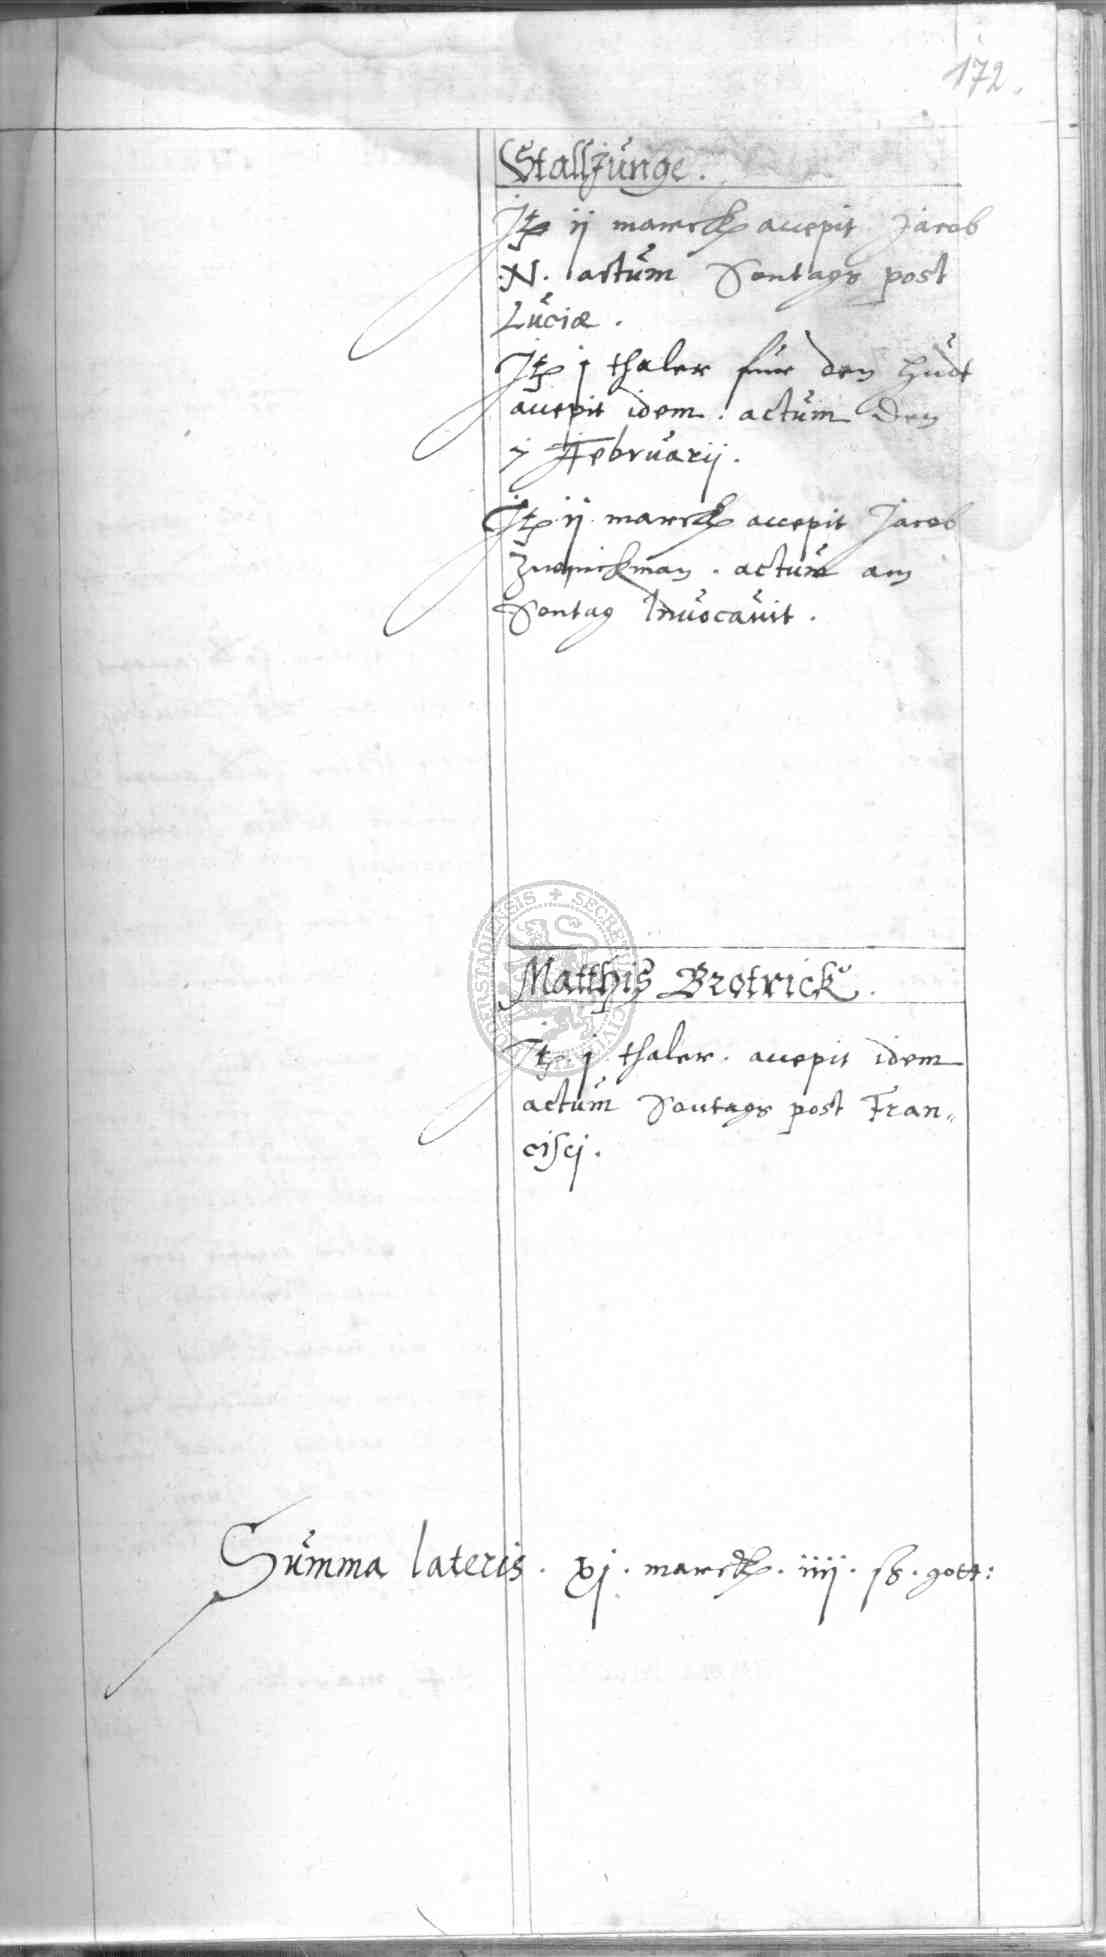 172.
Stalljunge.
Jt ij marck accepit Jacob
N. actum Sontags post
Luciæ.
Jt j thaler fur den Hudt
accepit idem. actum den
7 Februarij.
Jt ij marck accepit Jacob
actum am
Sontag Invocavit.
DERSTADIENSIS + SECRE CIVI
Matthis Brotrick.
Jt. j thaler. accepit idem
actum Sontags post Fran„
cisci.
Summa lateris. xj. marck. iiij. ß. gott: